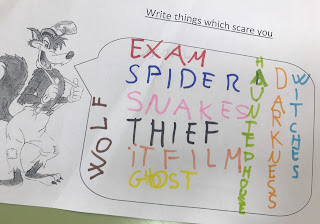 Write things which scare you
WOLF
EXAM
SPIDER
SNAKES
THIEF
iT FILM
GHOST
HAUNTED HOUSE
DARKNESS
WITCHES